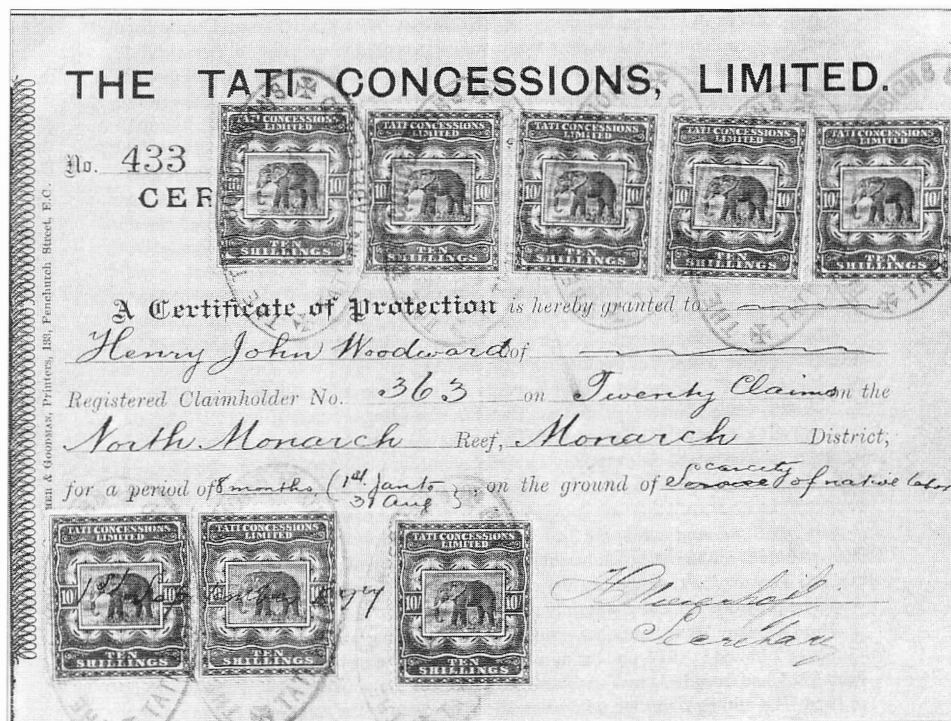 THE TATI CONCESSIONS, LIMITED.
No. 433
CER
TATI CONCESSIONS LIMITED 10/ 10/ TEN SHILLINGS
TATI CONCESSIONS LIMITED 10/ 10/ TEN SHILLINGS
TATI CONCESSIONS LIMITED 10/ 10/ TEN SHILLINGS
TATI CONCESSIONS LIMITED 10/ 10/ TEN SHILLINGS
TATI CONCESSIONS LIMITED 10/ 10/ TEN SHILLINGS
A Certificate of Protection is hereby granted to
Henry John Woodward of
Registered Claimholder No. 363 on Twenty Claims on the
North Monarch Reef, Monarch District,
for a period of 8 months (1st Jan to 31 Aug), on the ground of Scarcity of native labor
TATI CONCESSIONS LIMITED 10/ 10/ TEN SHILLINGS
TATI CONCESSIONS LIMITED 10/ 10/ TEN SHILLINGS
TATI CONCESSIONS LIMITED 10/ 10/ TEN SHILLINGS
1st September 1897
Secretary
& GOODMAN, Printers, Fenchurch Street, E.C.